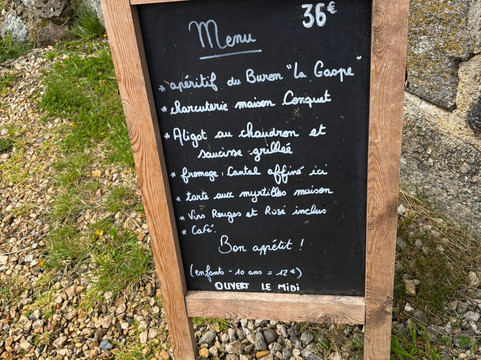 36€
Menu
* apéritif du Buron "La Gaspe"
* charcuterie maison Conquet
* Aligot au chaudron et
saucisse grillée
* fromage : Cantal affiné ici
* tarte aux myrtilles maison
* Vins Rouges et Rosé inclus
* Café.
Bon appétit !
(enfants - 10 ans = 12€)
OUVERT LE MIDI